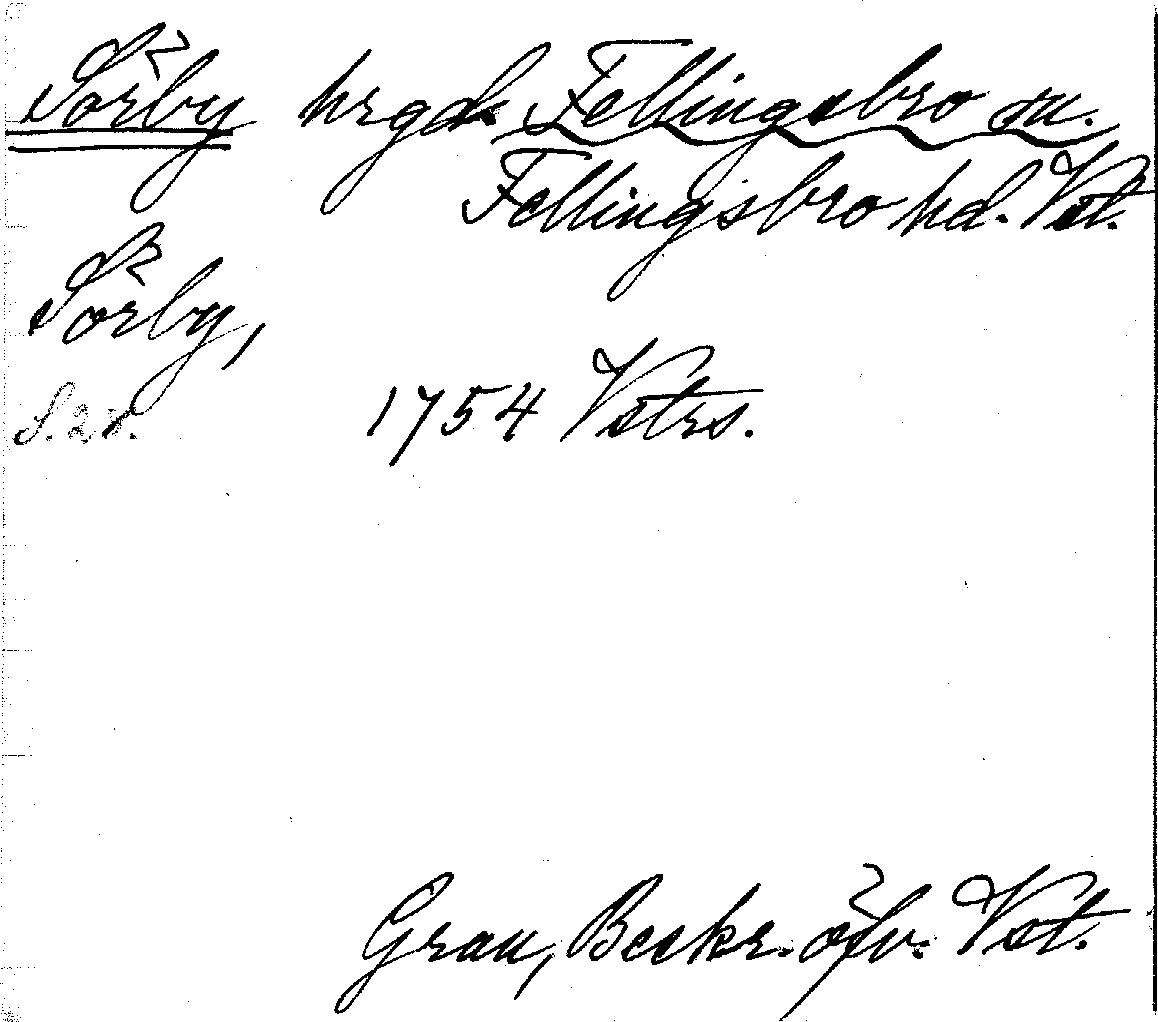 Sörby hrgd. Fellingsbro sn.
Fellingsbro hd. Vstl.
Sörby,
S. 28. 1754 Vstrs.
Grau, Beskr. öfv. Vstl.